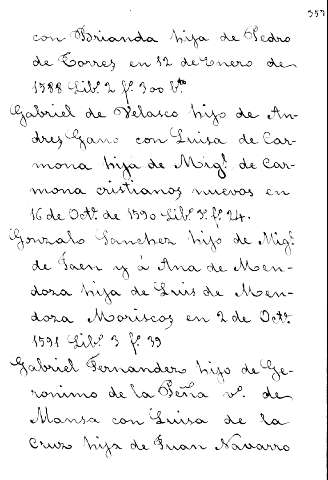 con Brianda hija de Pedro
de Torres en 12 de Enero de
1588 Lib.º 2 f.º 300 b.to
Gabriel de Velasco hijo de An-
dres Gano con Luisa de Car-
mona hija de Mig.l de Car-
mona cristianos nuevos en
16 de Oct.e de 1590 Lib.º 3.º f.º 24.
Gonzalo Sanchez hijo de Mig.l
de Jaen y á Ana de Men-
doza hija de Luis de Men-
doza Moriscos en 2 de Oct.e
1591 Lib.º 3 f.º 39
Gabriel Fernandez hijo de Ge-
ronimo de la Peña v.º de
Mansa con Luisa de la
Cruz hija de Juan Navarro